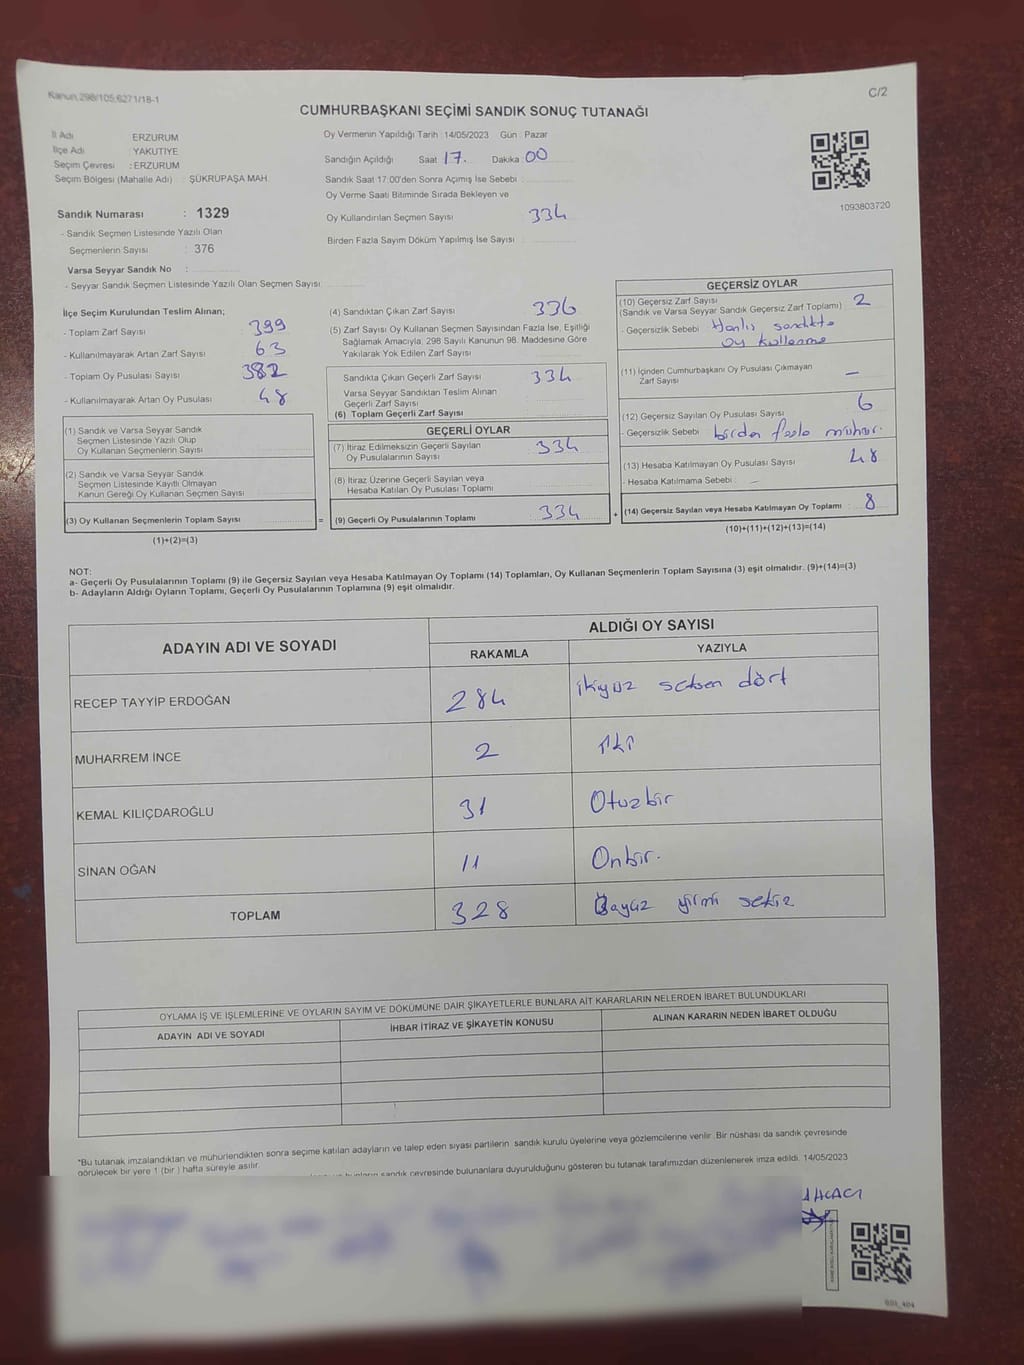 Kanun,298/105;6271/18-1
C/2
CUMHURBAŞKANI SEÇİMİ SANDIK SONUÇ TUTANAĞI
İl Adı ERZURUM
İlçe Adı : YAKUTİYE
Seçim Çevresi : ERZURUM
Seçim Bölgesi (Mahalle Adı) : ŞÜKRÜPAŞA MAH.
Oy Vermenin Yapıldığı Tarih : 14/05/2023 Gün : Pazar
Sandığın Açıldığı Saat 17. Dakika 00
Sandık Saat 17:00'den Sonra Açımış İse Sebebi :
Oy Verme Saati Bitiminde Sırada Bekleyen ve
Oy Kullandırılan Seçmen Sayısı 334
Birden Fazla Sayım Döküm Yapılmış İse Sayısı :
1093803720
Sandık Numarası : 1329
- Sandık Seçmen Listesinde Yazılı Olan
Seçmenlerin Sayısı : 376
Varsa Seyyar Sandık No :
- Seyyar Sandık Seçmen Listesinde Yazılı Olan Seçmen Sayısı:
İlçe Seçim Kurulundan Teslim Alınan;
- Toplam Zarf Sayısı 399
- Kullanılmayarak Artan Zarf Sayısı 63
- Toplam Oy Pusulası Sayısı 382
- Kullanılmayarak Artan Oy Pusulası 48
(1) Sandık ve Varsa Seyyar Sandık
Seçmen Listesinde Yazılı Olup
Oy Kullanan Seçmenlerin Sayısı
(2) Sandık ve Varsa Seyyar Sandık
Seçmen Listesinde Kayıtlı Olmayan
Kanun Gereği Oy Kullanan Seçmen Sayısı
(3) Oy Kullanan Seçmenlerin Toplam Sayısı =
(1)+(2)=(3)
(4) Sandıktan Çıkan Zarf Sayısı 336
(5) Zarf Sayısı Oy Kullanan Seçmen Sayısından Fazla İse, Eşitliği
Sağlamak Amacıyla, 298 Sayılı Kanunun 98. Maddesine Göre
Yakılarak Yok Edilen Zarf Sayısı
Sandıkta Çıkan Geçerli Zarf Sayısı 334
Varsa Seyyar Sandıktan Teslim Alınan
Geçerli Zarf Sayısı
(6) Toplam Geçerli Zarf Sayısı
GEÇERLİ OYLAR
(7) İtiraz Edilmeksizin Geçerli Sayılan
Oy Pusulalarının Sayısı 334
(8) İtiraz Üzerine Geçerli Sayılan veya
Hesaba Katılan Oy Pusulası Toplamı
(9) Geçerli Oy Pusulalarının Toplamı 334 +
GEÇERSİZ OYLAR
(10) Geçersiz Zarf Sayısı 2
(Sandık ve Varsa Seyyar Sandık Geçersiz Zarf Toplamı)
- Geçersizlik Sebebi
(11) İçinden Cumhurbaşkanı Oy Pusulası Çıkmayan
Zarf Sayısı –
(12) Geçersiz Sayılan Oy Pusulası Sayısı 6
- Geçersizlik Sebebi birden fazla mühür.
(13) Hesaba Katılmayan Oy Pusulası Sayısı 48
- Hesaba Katılmama Sebebi : –
(14) Geçersiz Sayılan veya Hesaba Katılmayan Oy Toplamı : 8
(10)+(11)+(12)+(13)=(14)
NOT:
a- Geçerli Oy Pusulalarının Toplamı (9) ile Geçersiz Sayılan veya Hesaba Katılmayan Oy Toplamı (14) Toplamları, Oy Kullanan Seçmenlerin Toplam Sayısına (3) eşit olmalıdır. (9)+(14)=(3)
b- Adayların Aldığı Oyların Toplamı, Geçerli Oy Pusulalarının Toplamına (9) eşit olmalıdır.
ADAYIN ADI VE SOYADI ALDIĞI OY SAYISI
RAKAMLA YAZIYLA
RECEP TAYYİP ERDOĞAN 284 ikiyüz seksen dört
MUHARREM İNCE 2 iki
KEMAL KILIÇDAROĞLU 31 Otuzbir
SİNAN OĞAN 11 Onbir.
TOPLAM 328 yirmi sekiz
OYLAMA İŞ VE İŞLEMLERİNE VE OYLARIN SAYIM VE DÖKÜMÜNE DAİR ŞİKAYETLERLE BUNLARA AİT KARARLARIN NELERDEN İBARET BULUNDUKLARI
ADAYIN ADI VE SOYADI İHBAR İTİRAZ VE ŞİKAYETİN KONUSU ALINAN KARARIN NEDEN İBARET OLDUĞU
*Bu tutanak imzalandıktan ve mühürlendikten sonra seçime katılan adayların ve talep eden siyasi partilerin sandık kurulu üyelerine veya gözlemcilerine verilir. Bir nüshası da sandık çevresinde
görülecek bir yere 1 (bir ) hafta süreyle asılır.
sandık çevresinde bulunanlara duyurulduğunu gösteren bu tutanak tarafımızdan düzenlenerek imza edildi. 14/05/2023